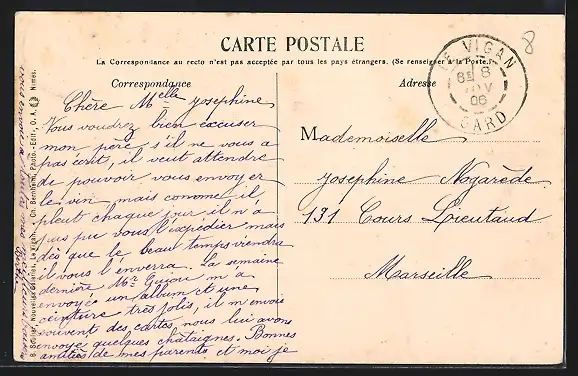 CARTE POSTALE
La Correspondance au recto n'est pas acceptée par tous les pays étrangers. (Se renseigner à la Poste.)
Correspondance
Adresse
8
LE VIGAN
8E 8
NOV
06
GARD
Chère Melle Josephine
Vous voudrez bien excuser
mon père s'il ne vous a
pas écrit, il veut attendre
de pouvoir vous envoyer
le vin, mais comme il
pleut chaque jour il n'a
pas pu vous l'expedier mais
dès que le beau temps viendra
il vous l'enverra. La semaine
dernière Mr m'a
envoyé un album et une
ceinture très jolis, il m'envoie
souvent des cartes, nous lui avons
envoyé quelques chataignes. Bonnes
amitiés de mes parents et moi je
vous
Mademoiselle
Josephine Nogarède
131 Cours Lieutaud
Marseille
B. Soulier, Nouvelles Galeries, Le Vigan. - Ch. Bernheim, Photo.-Edit., O. A. Nimes.